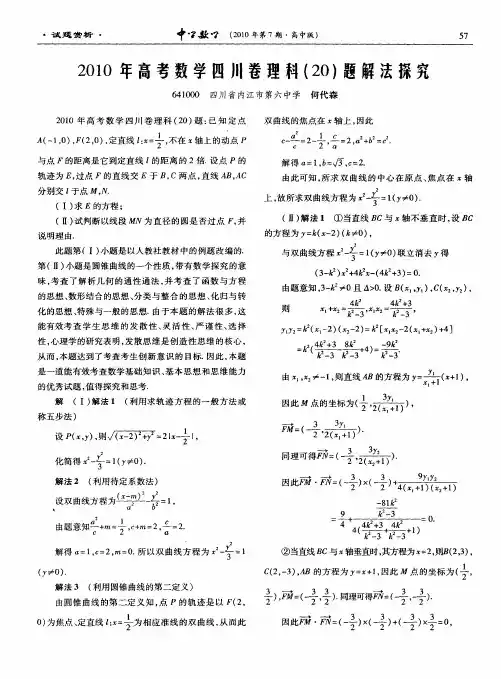 ·试题赏析·
中学数学 (2010年第7期·高中版)
57
2010年高考数学四川卷理科(20)题解法探究
641000 四川省内江市第六中学 何代森
2010年高考数学四川卷理科(20)题:已知定点
A(-1,0),F(2,0),定直线l:x=1/2,不在x轴上的动点P
与点F的距离是它到定直线l的距离的2倍. 设点P的
轨迹为E,过点F的直线交E于B,C两点,直线AB,AC
分别交l于点M,N.
(Ⅰ)求E的方程;
(Ⅱ)试判断以线段MN为直径的圆是否过点F,并
说明理由.
此题第(Ⅰ)小题是以人教社教材中的例题改编的.
第(Ⅱ)小题是圆锥曲线的一个性质,带有数学探究的意
味,考查了解析几何的通性通法,并考查了函数与方程
的思想、数形结合的思想、分类与整合的思想、化归与转
化的思想、特殊与一般的思想. 由于本题的解法很多,这
能有效考查学生思维的发散性、灵活性、严谨性、选择
性,心理学的研究表明,发散思维是创造性思维的核心,
从而,本题达到了考查考生创新意识的目标. 因此,本题
是一道能有效考查数学基础知识、基本思想和思维能力
的优秀试题,值得探究和思考.
解 (Ⅰ)解法1 (利用求轨迹方程的一般方法或
称五步法)
设P(x,y),则√((x-2)²+y²)=2|x-1/2|,
化简得x²-y²/3=1(y≠0).
解法2 (利用待定系数法)
设双曲线方程为(x-m)²/a²-y²/b²=1,
由题意知a²/c+m=1/2,c+m=2,c/a=2.
解得a=1,c=2,m=0. 所以双曲线方程为x²-y²/3=1
(y≠0).
解法3 (利用圆锥曲线的第二定义)
由圆锥曲线的第二定义知,点P的轨迹是以F(2,
0)为焦点、定直线l:x=1/2为相应准线的双曲线,从而此
双曲线的焦点在x轴上,因此
c-a²/c=2-1/2,c/a=2,a²+b²=c².
解得a=1,b=√3,c=2.
由此可知,所求双曲线的中心在原点、焦点在x轴
上,故所求双曲线方程为x²-y²/3=1(y≠0).
(Ⅱ)解法1 ①当直线BC与x轴不垂直时,设BC
的方程为y=k(x-2)(k≠0),
与双曲线方程x²-y²/3=1(y≠0)联立消去y得
(3-k²)x²+4k²x-(4k²+3)=0.
由题意知,3-k²≠0且Δ>0. 设B(x₁,y₁),C(x₂,y₂),
则 x₁+x₂=4k²/(k²-3),x₁x₂=(4k²+3)/(k²-3),
y₁y₂=k²(x₁-2)(x₂-2)=k²[x₁x₂-2(x₁+x₂)+4]
=k²((4k²+3)/(k²-3)-8k²/(k²-3)+4)=-9k²/(k²-3).
由x₁,x₂≠-1,则直线AB的方程为y=y₁/(x₁+1)(x+1),
因此M点的坐标为(1/2,3y₁/2(x₁+1)),
FM=(-3/2,3y₁/2(x₁+1)).
同理可得FN=(-3/2,3y₂/2(x₂+1)).
因此FM·FN=(-3/2)×(-3/2)+9y₁y₂/4(x₁+1)(x₂+1)
=9/4+(-81k²/(k²-3))/4((4k²+3)/(k²-3)+4k²/(k²-3)+1)=0.
②当直线BC与x轴垂直时,其方程为x=2,则B(2,3),
C(2,-3),AB的方程为y=x+1,因此M点的坐标为(1/2,
3/2),FM=(-3/2,3/2). 同理可得FN=(-3/2,-3/2).
因此FM·FN=(-3/2)×(-3/2)+(-3/2)×3/2=0,